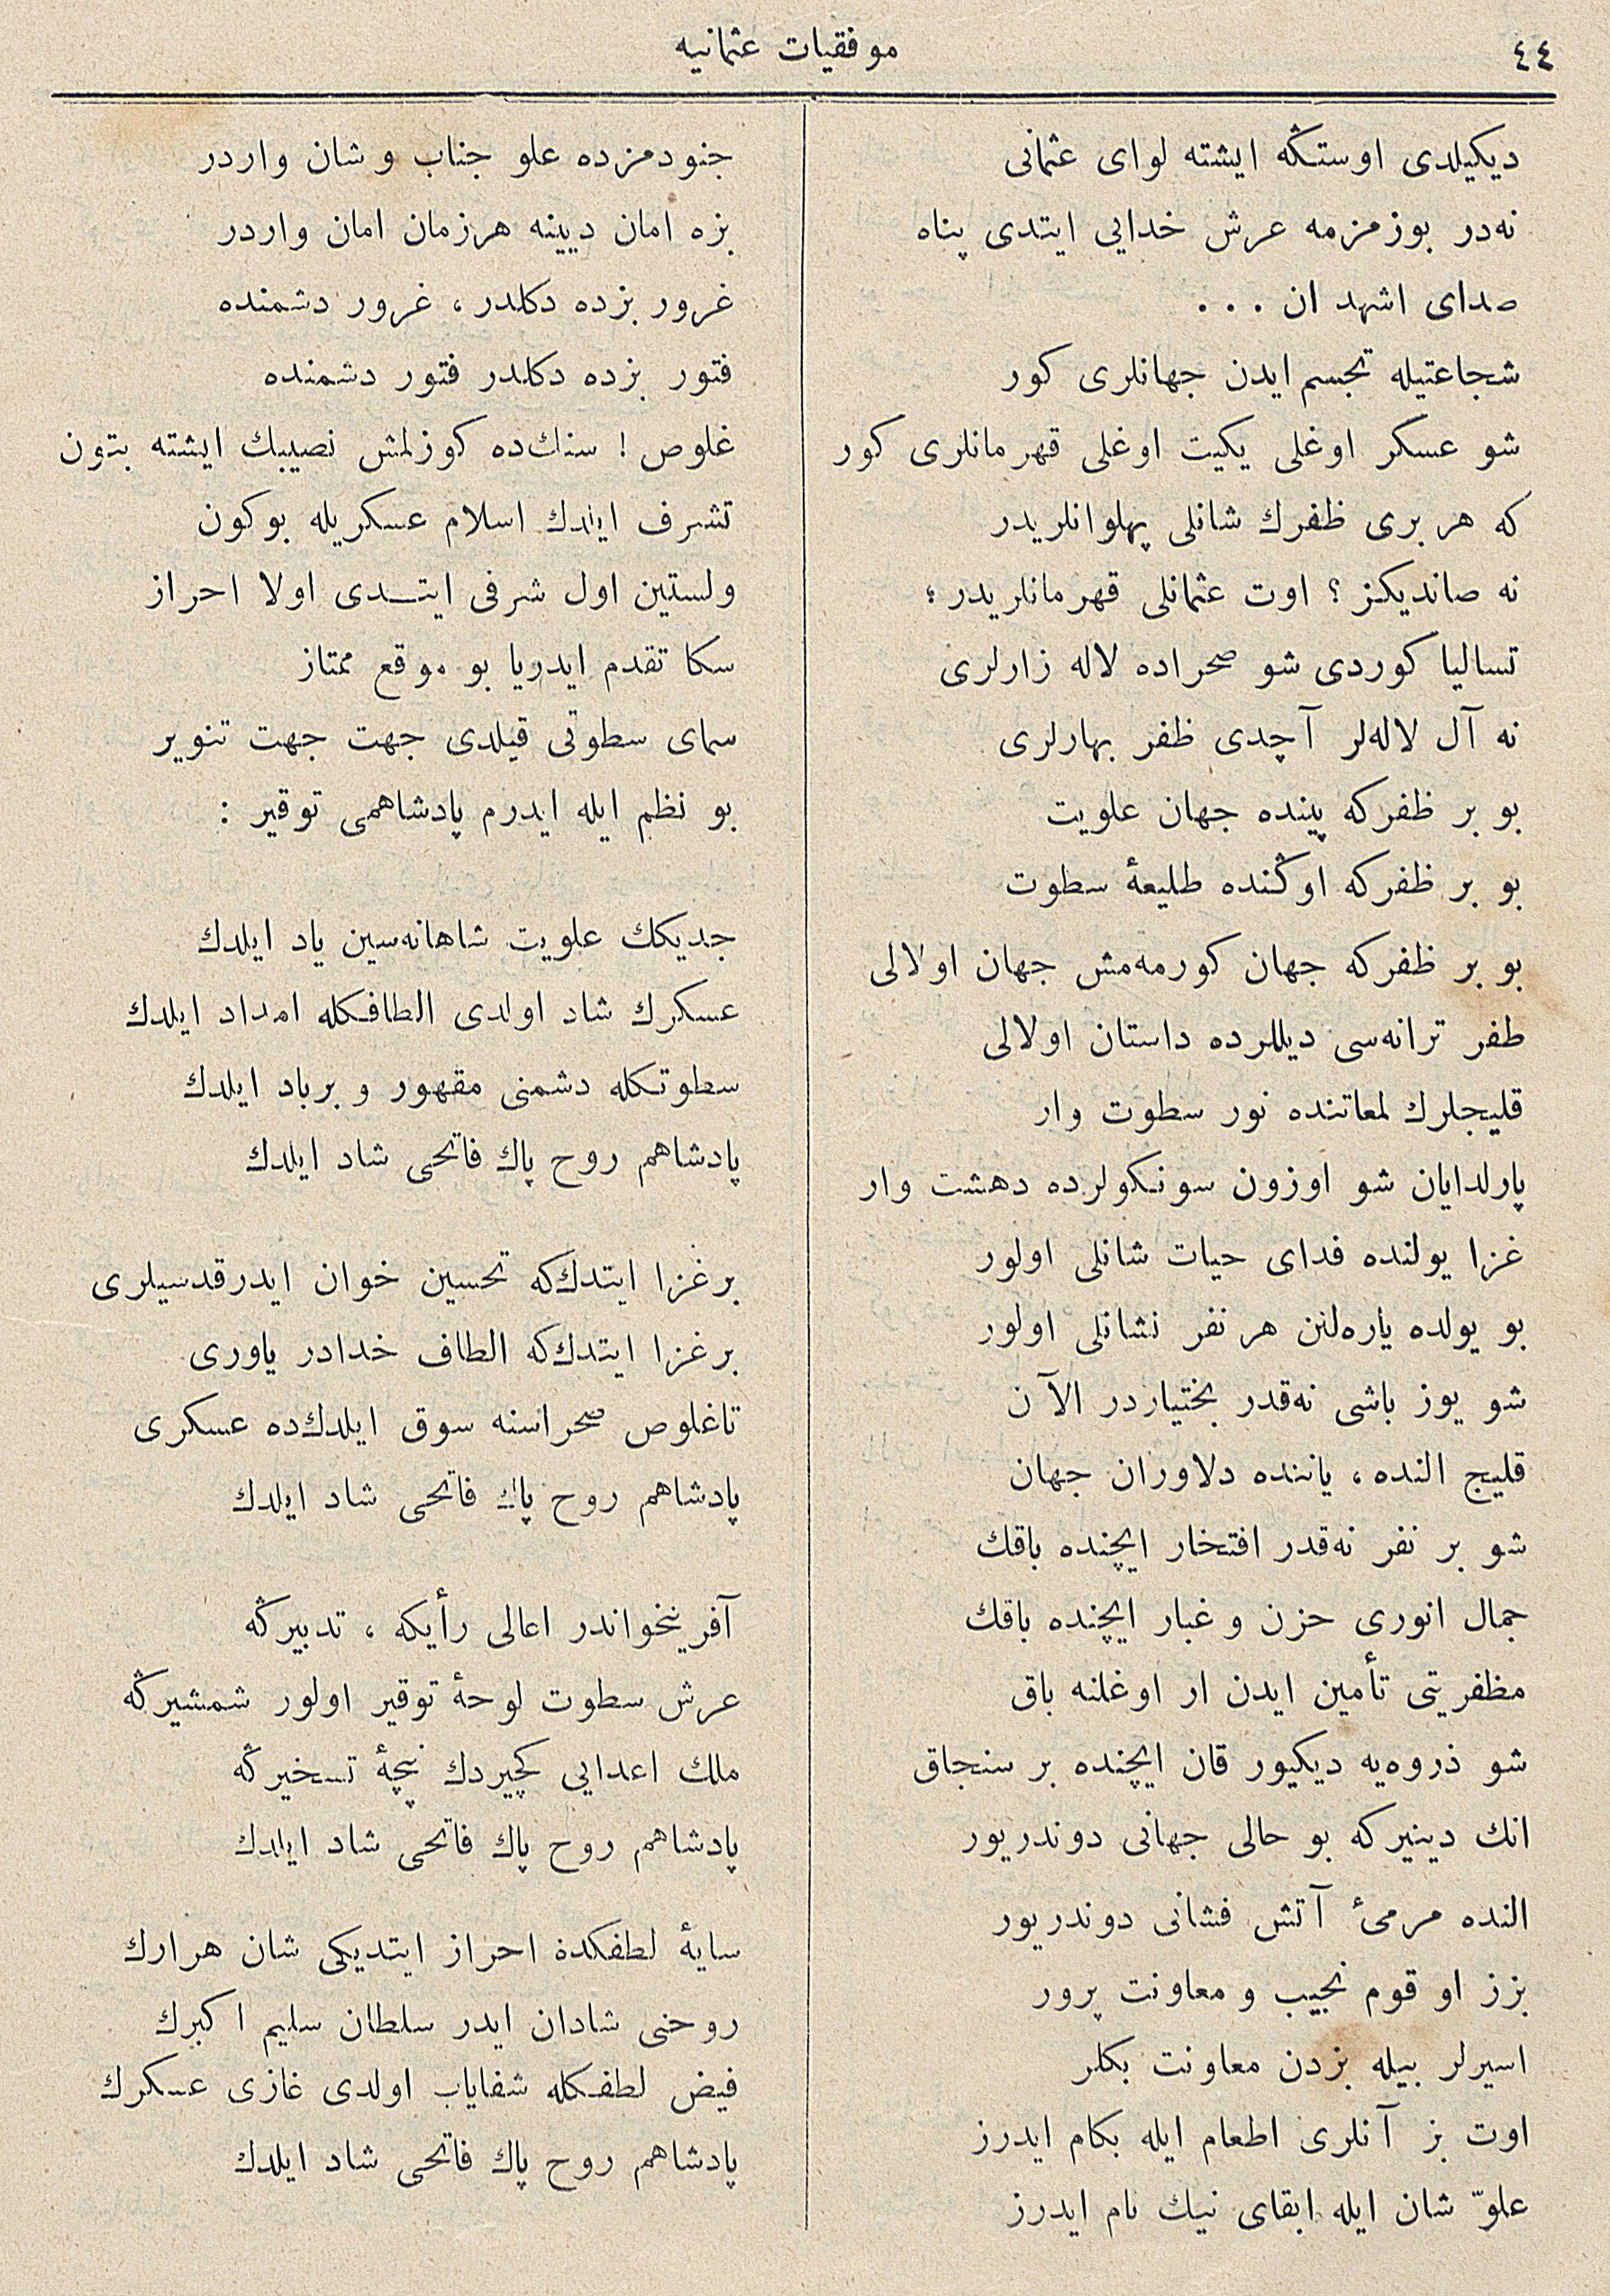 ٤٤
موفقيات عثمانيه
ديكيلدى اوستڭه ايشته لواى عثمانى
نه‌در بوزمزمه عرش خدايى ايتدى پناه
صداى اشهد ان . . .
شجاعتيله تجسم ايدن جهانلرى كور
شو عسكر اوغلى يكيت اوغلى قهرمانلرى كور
كه هر برى ظفرك شانلى پهلوانلريدر
نه صانديكز ؟ اوت عثمانلى قهرمانلريدر ؛
تساليا كوردى شو صحراده لاله زارلرى
نه آل لاله‌لر آچدى ظفر بهارلرى
بو بر ظفركه پينده جهان علويت
بو بر ظفركه اوڭنده طليعۀ سطوت
بو بر ظفركه جهان كورمه‌مش جهان اولالى
ظفر ترانه‌سى ديللرده داستان اولالى
قليجلرك لمعاتنده نور سطوت وار
پارلدايان شو اوزون سونكولرده دهشت وار
غزا يولنده فداى حيات شانلى اولور
بو يولده ياره‌لنن هر نفر نشانلى اولور
شو يوز باشى نه‌قدر بختياردر الآن
قليج النده ، ياننده دلاوران جهان
شو بر نفر نه‌قدر افتخار ايچنده باقك
جمال انورى حزن و غبار ايچنده باقك
مظفريتى تأمين ايدن ار اوغلنه باق
شو ذروه‌يه ديكيور قان ايچنده بر سنجاق
انك دينيركه بو حالى جهانى دوندريور
النده مرمىٔ آتش فشانى دوندريور
بزز او قوم نجيب و معاونت پرور
اسيرلر بيله بزدن معاونت بكلر
اوت بز آنلرى اطعام ايله بكام ايدرز
علوّ شان ايله ابقاى نيك نام ايدرز
جنودمزده علو جناب و شان واردر
بزه امان ديينه هرزمان امان واردر
غرور بزده دكلدر ، غرور دشمنده
فتور بزده دكلدر فتور دشمنده
غلوص ! سنك‌ده كوزلمش نصيبك ايشته بتون
تشرف ايتدك اسلام عسكريله بوكون
ولستين اول شرفى ايتدى اولا احراز
سكا تقدم ايدريا بو موقع ممتاز
سماى سطوتى قيلدى جهت جهت تنوير
بو نظم ايله ايدرم پادشاهمى توقير :
جديكك علويت شاهانه‌سين ياد ايلدك
عسكرك شاد اولدى الطافكله امداد ايلدك
سطوتكله دشمنى مقهور و برباد ايلدك
پادشاهم روح پاك فاتحى شاد ايلدك
برغزا ايتدك‌كه تحسين خوان ايدرقدسيلرى
برغزا ايتدك‌كه الطاف خدادر ياورى
تاغلوص صحراسنه سوق ايلدك‌ده عسكرى
پادشاهم روح پاك فاتحى شاد ايلدك
آفرينخواندر اعالى رأيكه ، تدبيرڭه
عرش سطوت لوحۀ توقير اولور شمشيرڭه
ملك اعدايى كچيردك پنچۀ تسخيرڭه
پادشاهم روح پاك فاتحى شاد ايلدك
سايۀ لطفكدة احراز ايتديكى شان هرارك
روحنى شادان ايدر سلطان سليم اكبرك
فيض لطفكله شفاياب اولدى غازى عسكرك
پادشاهم روح پاك فاتحى شاد ايلدك